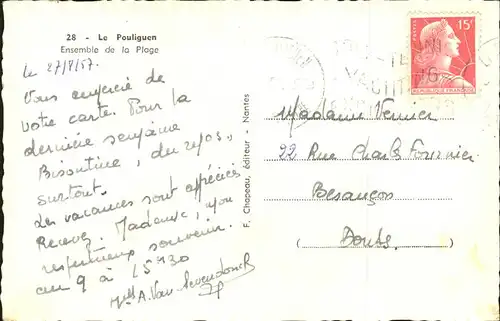 28 - Le Pouliguen
Ensemble de la Plage
Le 27/8/57.
Vous remercie de
votre carte. Pour la
dernière semaine
Bisontine, du repos,
surtout.
Les vacances sont appréciées
Recevez, Madame, mon
respectueux souvenir.
au 9 à 15 h 30
Mlle A. Van
F. Chapeau, éditeur - Nantes
POSTES
15f
REPUBLIQUE FRANÇAISE
TENNIS
YACHTING
Madame Vernier
22 Rue Charles Fournier
Besançon
(Doubs)